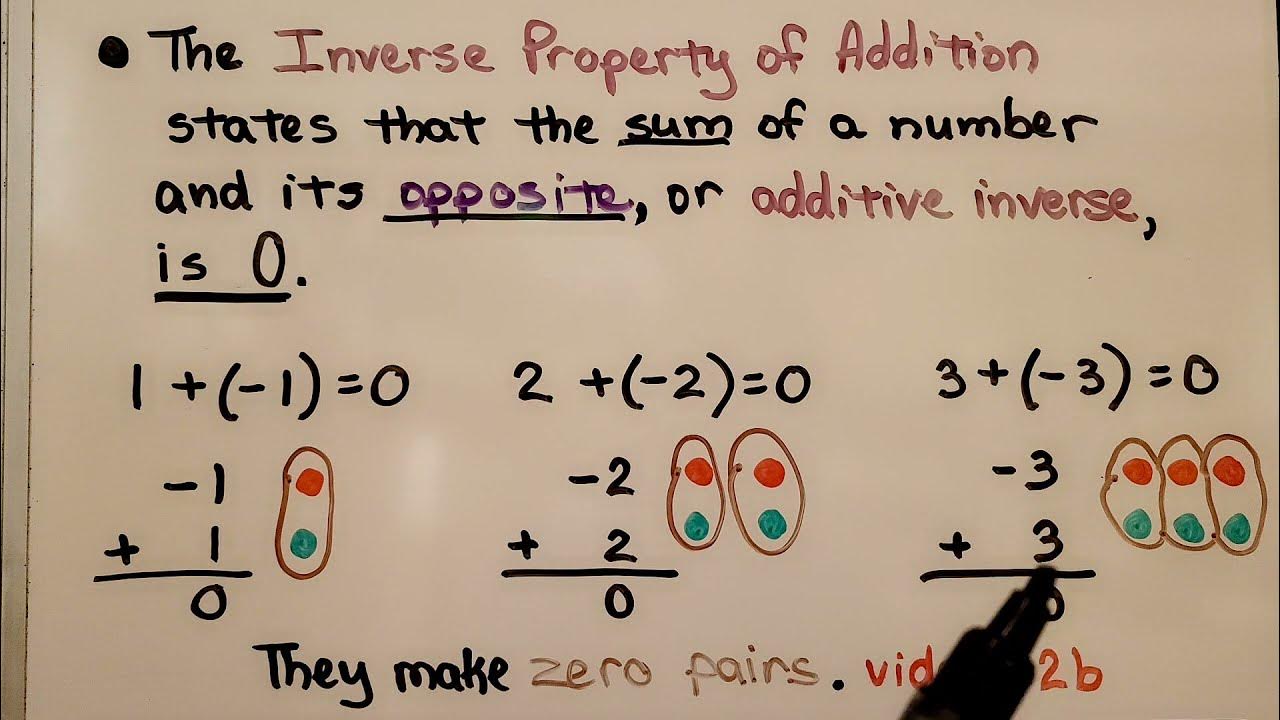 • The Inverse Property of Addition
states that the sum of a number
and its opposite, or additive inverse,
is 0.
1 + (-1) = 0
2 + (-2) = 0
3 + (-3) = 0
-1
+ 1
0
-2
+ 2
0
-3
+ 3
0
They make zero pairs. 2b